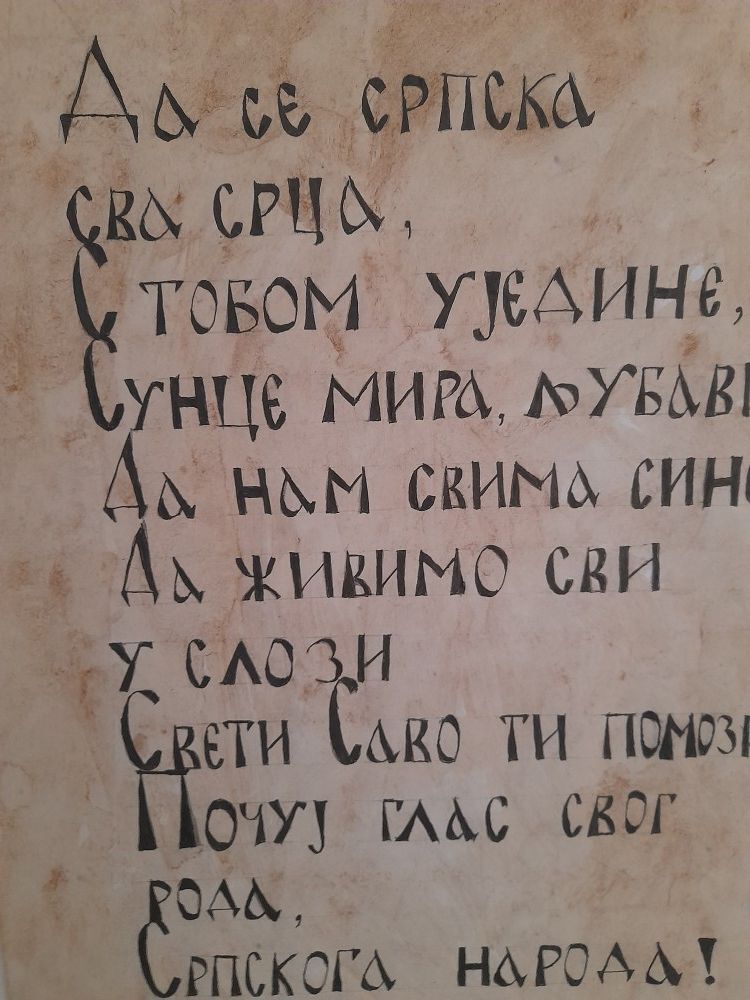 Да се српска
сва срца,
С тобом уједине,
Сунце мира, љубави
Да нам свима
Да живимо сви
у слози
Свети Саво ти помози
Почуј глас свог
рода,
Српскога народа!